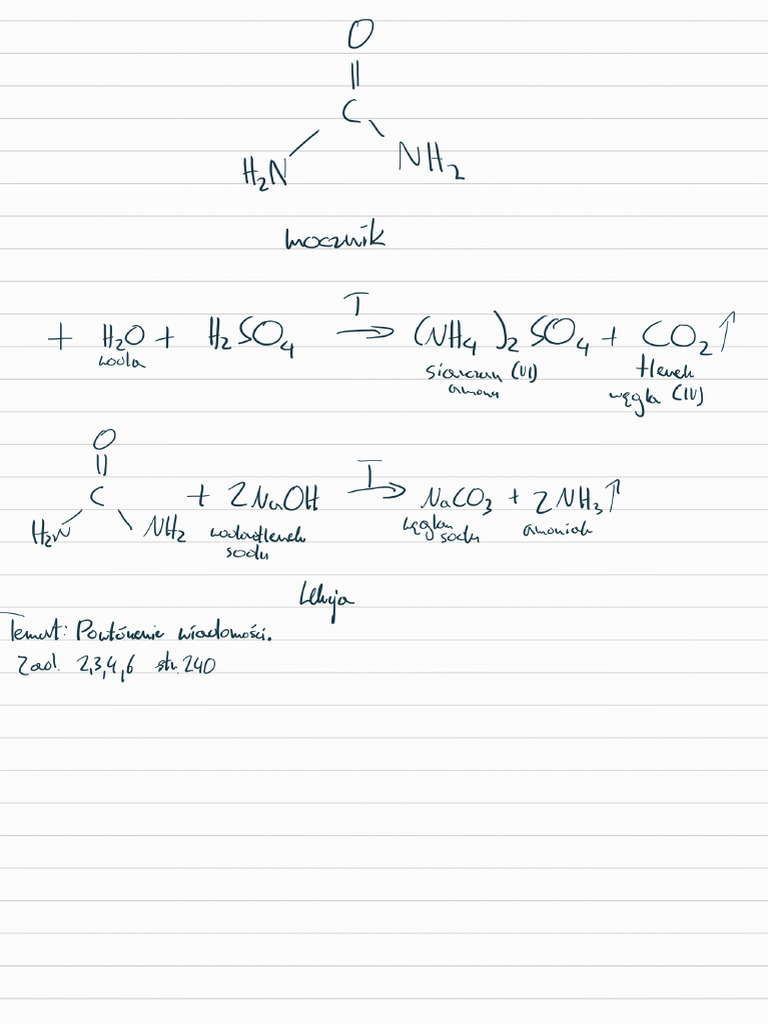 O
||
C
H₂N NH₂
mocznik
+ H₂O + H₂SO₄ T → (NH₄)₂SO₄ + CO₂↑
woda siarczan (VI) amonu tlenek węgla (IV)
O
||
C
H₂N NH₂ + 2NaOH T → NaCO₃ + 2NH₃↑
wodorotlenek sodu węglan sodu amoniak
Lekcja
Temat: Powtórzenie wiadomości.
Zad. 2,3,4,6 str. 240